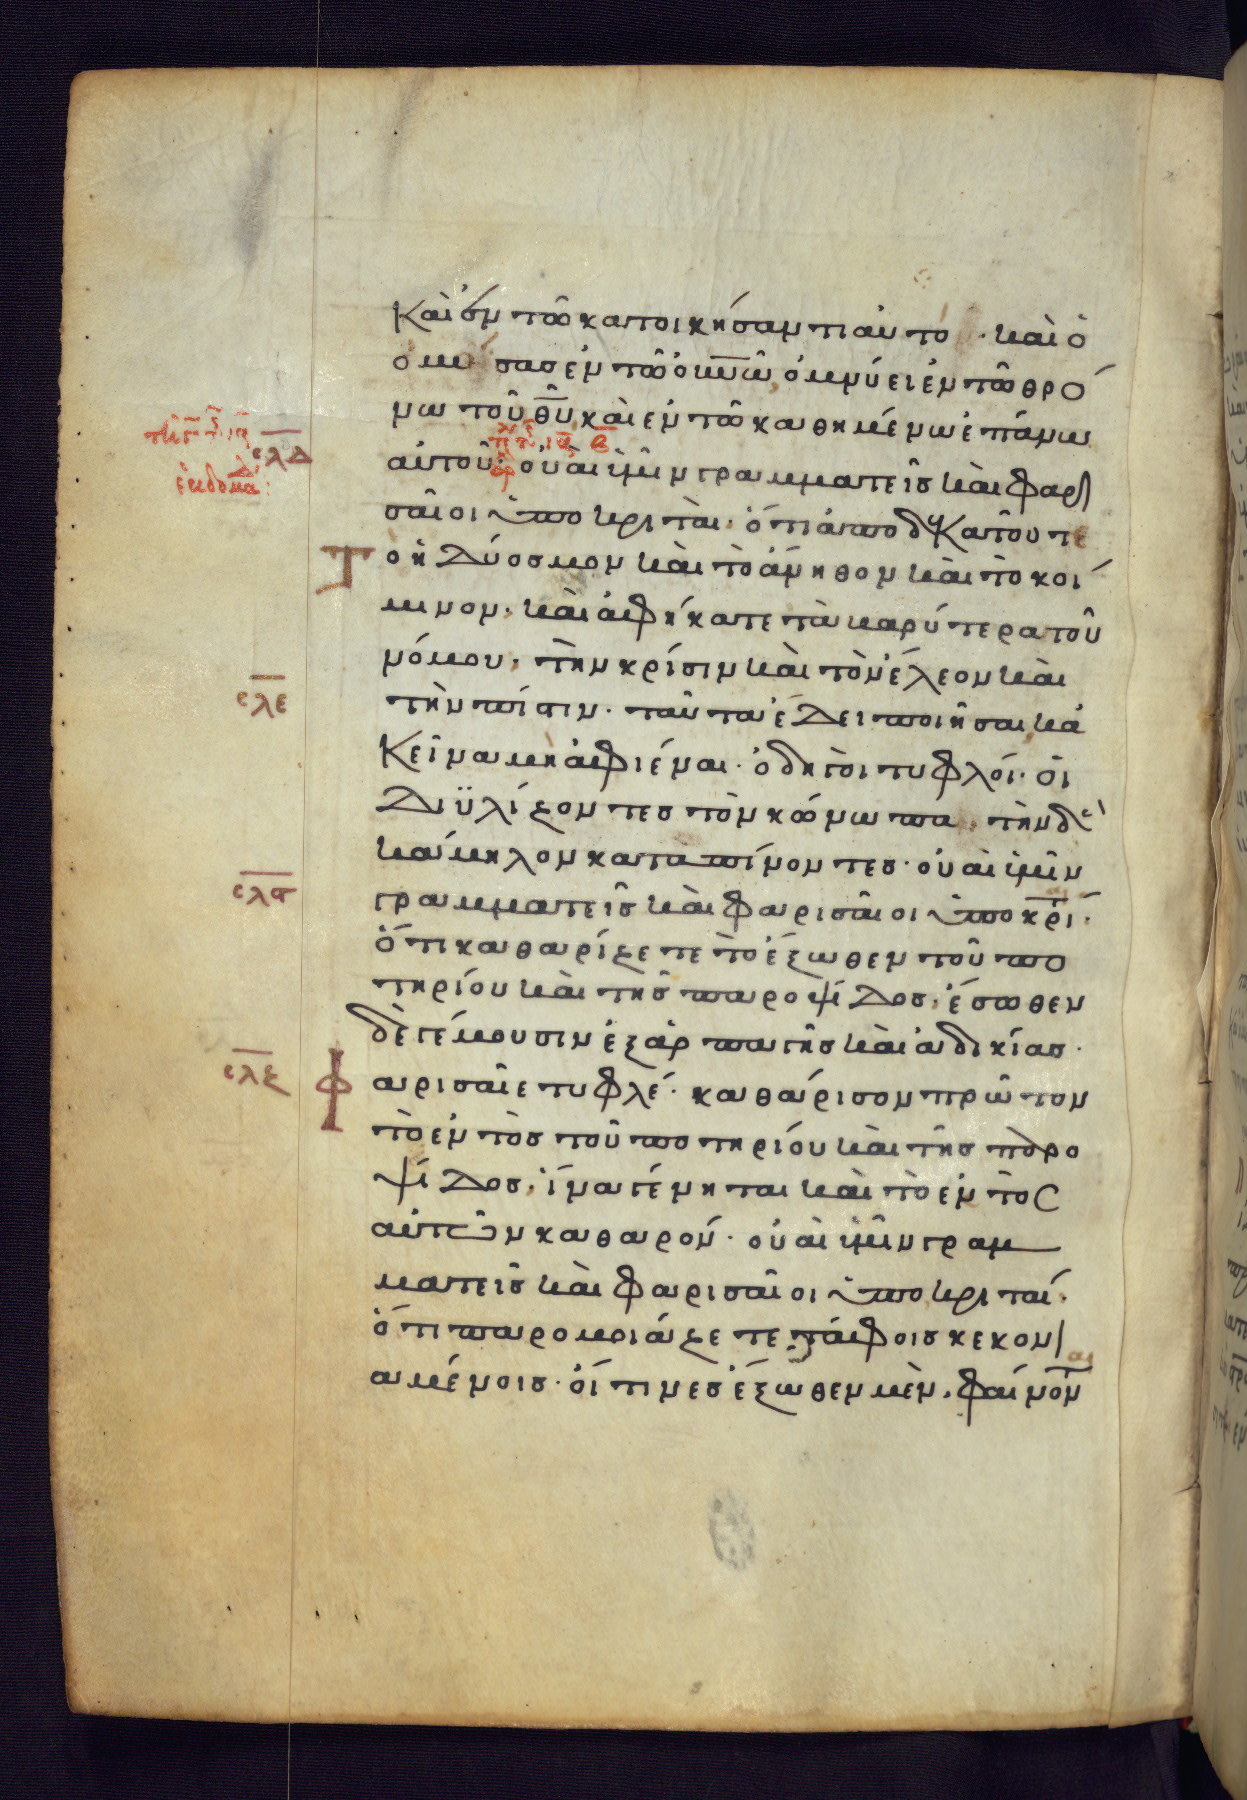 καὶ ἐν τῶ κατοικήσαντι αὐτο · καὶ ὁ
ομο σασ ἐν τῶ οὐνῶ, ὀμνύει ἐν τῶ θρό
νω τοῦ θ̅υ̅, καὶ ἐν τῶ καθημένω ἐπάνω
ελδ
αὐτοῦ· οὐαὶ ὑμῖν γραμματεῖσ καὶ φαρι
ἑβδομα:
σαῖοι ὑποκριταὶ· ὅτι ἀποδεκατοῦτε
Τ ο ἡδύοσμον καὶ τὸ ἄνηθον καὶ τὸ κοί
μινον· καὶ ἀφήκατε τὰ βαρύτερα τοῦ
νόμου, τὴν κρίσιν καὶ τὸν ἔλεον καὶ
ελε
τὴν πίστιν· ταῦτα ἔδει ποιῆσαι κἀ
κεῖνα μὴ ἀφιέναι· ὁδηγοὶ τυφλοί· οἱ
Διϋλίζοντεσ τὸν κώνωπα, τὴν δὲ
κάμηλον καταπίνοντεσ· οὐαὶ ὑμῖν
ελσ
γραμματεῖσ καὶ φαρισαῖοι ὑποκρι·
ὅτι καθαρίζετε τὸ ἔξωθεν τοῦ πο
τηρίου καὶ τῆσ παροψίδοσ, ἔσωθεν
δὲ γέμουσιν ἐξ ἁρπαγῆσ καὶ ἀδικίασ·
ελζ
Φ αρισαῖε τυφλέ· καθάρισον πρῶτον
τὸ ἐντὸσ τοῦ ποτηρίου καὶ τῆσ παρο
ψίδοσ, ἵνα γένηται καὶ τὸ ἐντὸσ
αὐτῶν καθαρόν· οὐαὶ ὑμῖν γραμ
ματεῖσ καὶ φαρισαῖοι ὑποκριταί·
ὅτι παρομοιάζετε τάφοισ κεκονι
αμένοισ· οἵτινεσ ἔξωθεν μὲν, φαίνον